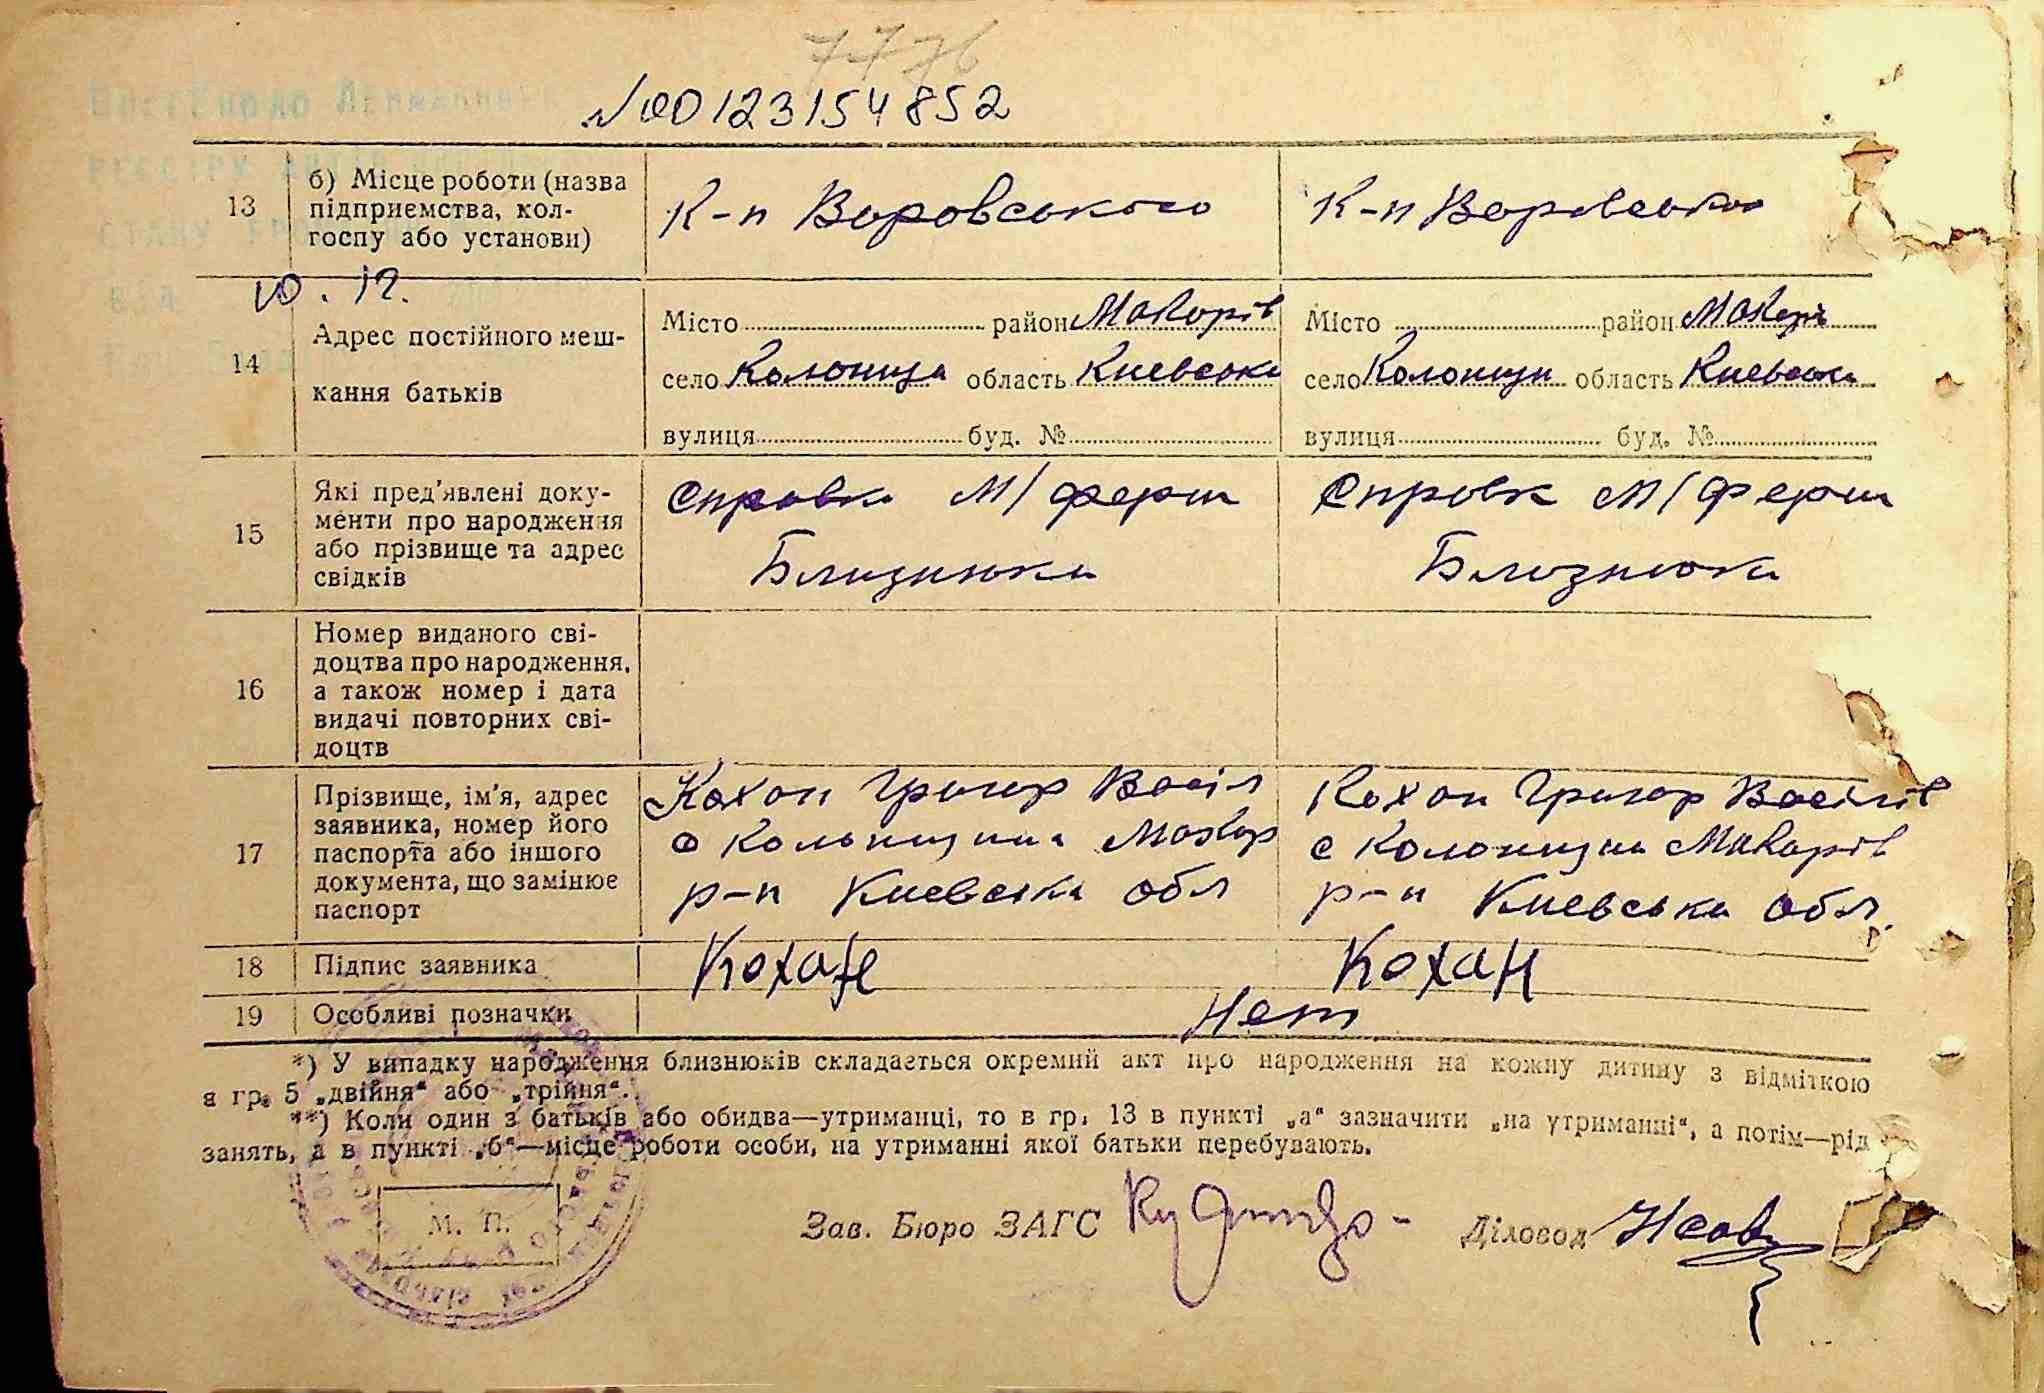 7776
№00123154852
13 б) Місце роботи (назва підприємства, колгоспу або установи) К-п Воровського К-п Воровсько
10.12.
14 Адрес постійного меш-
кання батьків
Місто район Макорів Місто район Макорів
село Колонща область Киевська село Колонщи область Киевська
вулиця буд. № вулиця буд. №
15 Які пред'явлені доку-
менти про народження
або прізвище та адрес
свідків
Справка М/ферми Справк М/ферми
Близнюки Близнюки
16 Номер виданого сві-
доцтва про народження,
а також номер і дата
видачі повторних сві-
доцтв
17 Прізвище, ім'я, адрес
заявника, номер його
паспорта або іншого
документа, що замінює
паспорт
Кохан Григор Васіл Кохан Григор Васілів
с Колонщина Макор с Колонщини Макорів
р-н Киевська обл р-н Киевська обл.
18 Підпис заявника Кохан Кохан
19 Особливі позначки Нет
*) У випадку народження близнюків складається окремий акт про народження на кожну дитину з відміткою
в гр. 5 „двійня“ або „трійня“.
**) Коли один з батьків або обидва—утриманці, то в гр. 13 в пункті „а“ зазначити „на утриманні“, а потім—рід
занять, а в пункті „б“—місце роботи особи, на утриманні якої батьки перебувають.
М. П.
Зав. Бюро ЗАГС Діловод